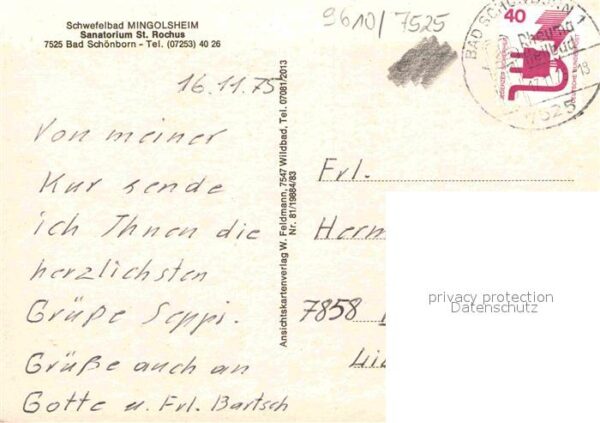 Schwefelbad MINGOLSHEIM
Sanatorium St. Rochus
7525 Bad Schönborn - Tel. (07253) 40 26
9610/7525
40
BAD SCHÖNBORN 1
7525
16.11.75
Von meiner
Kur sende
ich Ihnen die
herzlichsten
Grüße Seppi.
Grüße auch an
Gotte u. Frl. Bartsch
Ansichtskartenverlag W. Feldmann, 7547 Wildbad, Tel. 07081/2013
Nr. 81/19884/83
Frl.
Herm
7858
privacy protection
Datenschutz